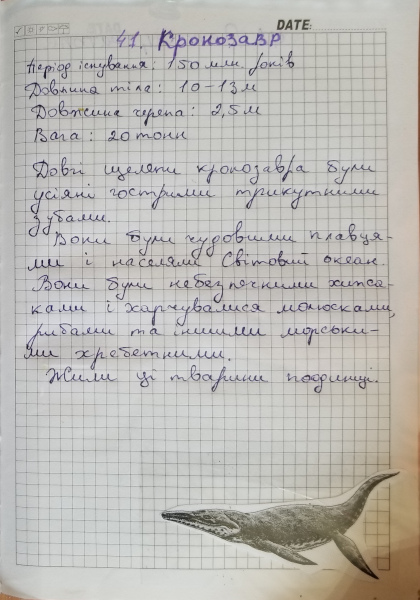 DATE:
41. Кронозавр
Період існування: 150 млн. років
Довжина тіла: 10-13м
Довжина черепа: 2,5м
Вага: 20 тонн
Довгі щелепи кронозавра були
усіяні гострими трикутними
зубами.
Вони були чудовими плавця-
ми і населяли Світовий океан.
Вони були небезпечними хижа-
ками і харчувалися молюсками,
рибами та іншими морськи-
ми хребетними.
Жили ці тварини поодинці.